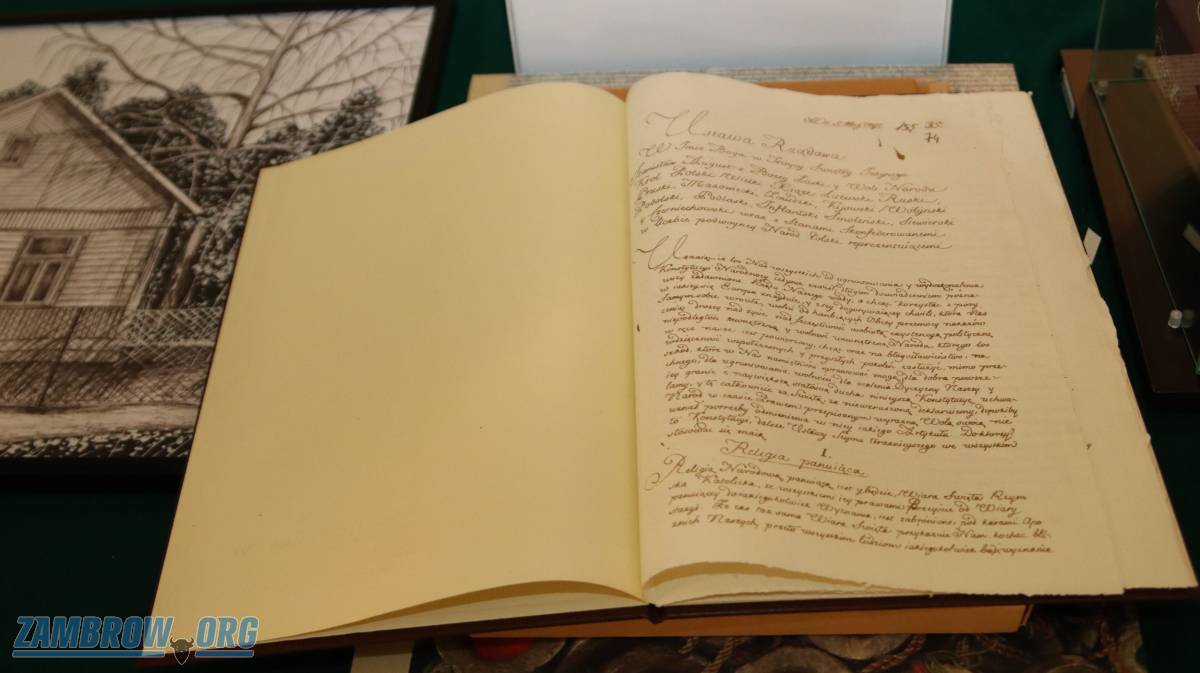 74
Ustawa Rządowa
W Imie Boga w Troycy Swiętey Jedynego
Stanisław August z Bozey Łaski y Woli Narodu
Krol Polski, Wielki Xiąze Litewski, Ruski,
Pruski, Mazowiecki, Zmudzki, Kijowski, Wołyński
Podolski, Podlaski, Inflantski, Smoleński, Siewierski
y Czerniechowski, wraz z Stanami Skonfederowanemi
w liczbie podwoyney Narod Polski reprezentuiącemi
Uznaiąc, iz los Nas wszystkich od ugruntowania y wydoskonalenia
Konstytucyi Narodowey iedynie zawisł, długim doswiadczeniem poznawszy
zadawnione Rządu Naszego wady, a chcąc korzystac z pory
w iakiey się Europa znayduie, y z tey dogorywaiącey chwili, ktora Nas
samym sobie wrociła, wolni od hanbiących obcey przemocy nakazow
ceniąc drozey nad zycie, nad szczęsliwosc osobistą, exystencyą polityczną
niepodległosc zewnętrzną y wolnosc wewnętrzną Narodu, ktorego los
w ręce nasze iest powierzony, chcąc oraz na błogosławienstwo, na
wdzięcznosc wspołczesnych y przyszłych pokolen zasłuzyc, mimo prze-
szkod, ktore w Nas namiętnosci sprawowac mogą, dla dobra powsze-
chnego, dla ugruntowania wolnosci, dla ocalenia Oyczyzny Naszey y
iey granic z naywiększą stałoscią ducha ninieyszą Konstytucyę uchwa-
lamy, y tę całkowicie za swiętą, za niewzruszoną deklaruiemy, dopokiby
Narod w czasie prawem przepisanym, wyrazną Wolą swoią nie
uznał potrzeby odmienienia w niey iakiego Artykułu. Do ktorey
to Konstytucyi, dalsze Ustawy Seymu teraznieyszego we wszystkim
stosowac się maią.
I.
Religia panuiąca
Religią Narodową panuiącą iest y będzie, Wiara Swięta Rzym-
ska Katolicka, ze wszystkiemi iey prawami. Przeyscie od Wiary
panuiącey do iakiegokolwiek Wyznania, iest zabronione, pod karami Apo-
stazyi. Ze zas taz sama Wiara Swięta przykazuie Nam kochac bli-
znich Naszych, przeto wszystkim ludziom iakiegokolwiek bądz wyznania
ZAMBROW.ORG